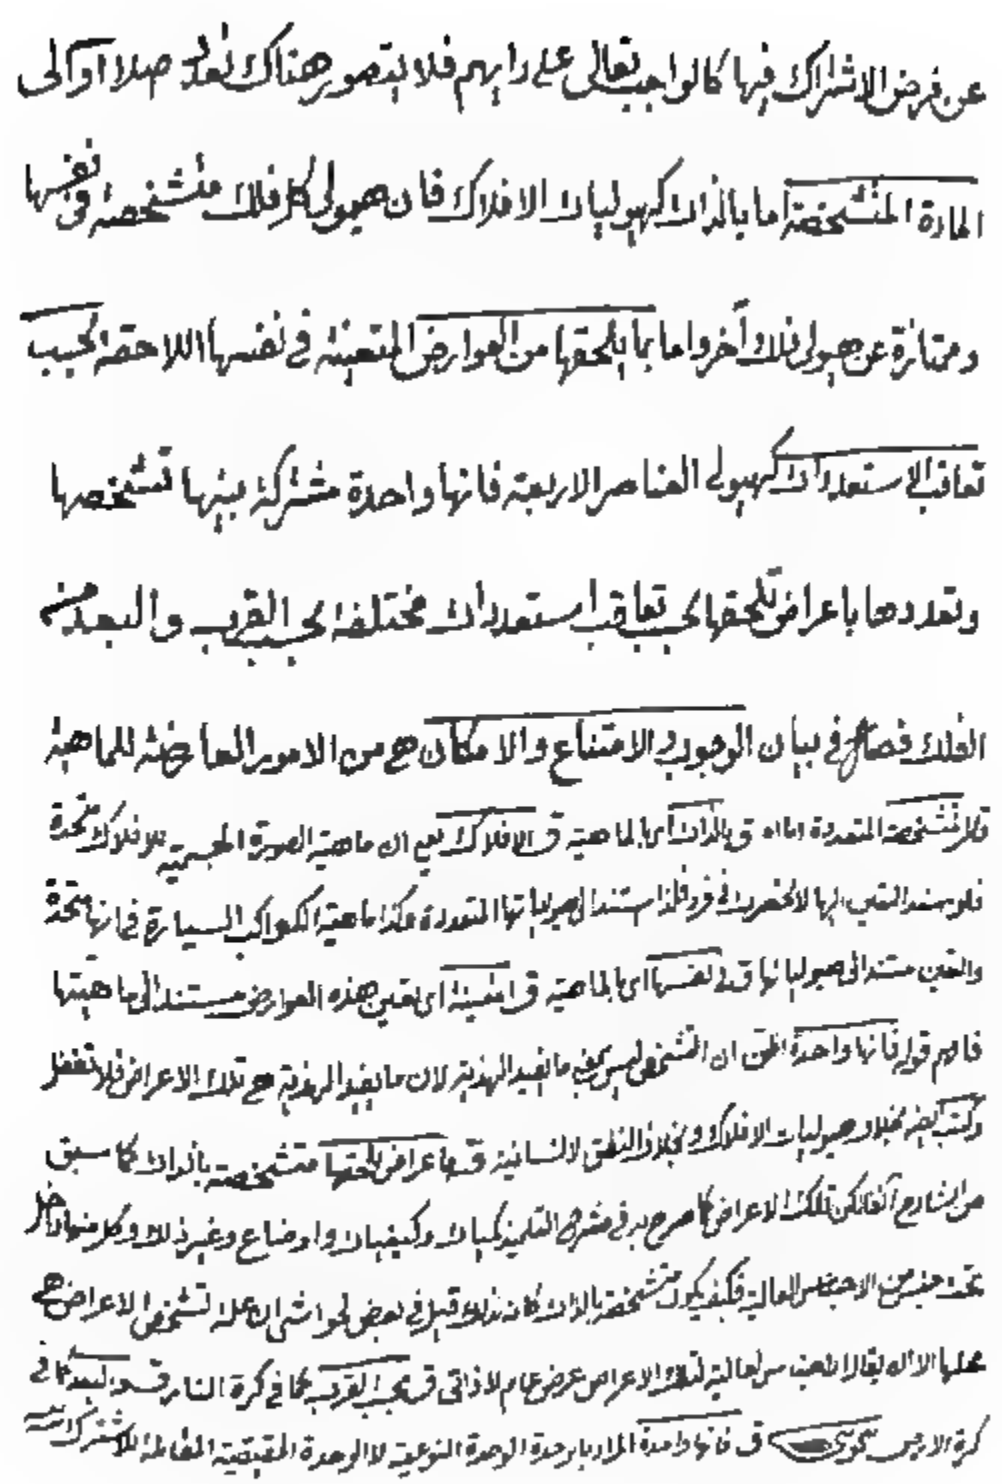 عن فرض الاشتراك فيها كالواجب تعالى على رايهم فلا يتصور هناك تعدد اصلا او الى
المادة المتشخصة اما بالذات كهيوليات الافلاك فان هيولى كل فلك متشخصة فى نفسها
وممتازة عن هيولى فلك آخر واما بما يلحقها من العوارض المتعينة فى نفسها اللاحقة بحسب
تعاقب الاستعدادات كهيولى العناصر الاربعة فانها واحدة مشتركة بينها تشخصها
وتعددها باعراض تلحقها بحسب تعاقب استعدادات مختلفة بحسب القرب والبعد من
الفلك فصل فى بيان الوجوب والامتناع والامكان هى من الامور العارضة للماهية
المتشخصة المتعددة اما بالذات اى بالماهية ق الافلاك يعنى ان ماهية الصورة الجسمية للافلاك متحدة
فلو استند التعين اليها لانحصرت فى فرد فلذا استند الى هيولياتها المتعددة هكذا ماهية الكواكب السيارة فانها متحدة
والتعين مستند الى هيولياتها ق فى نفسها اى بالماهية ق المتعينة اى تعين هذه العوارض مستند الى ماهيتها
فافهم قوله فانها واحدة اظن ان التشخص ليس بمعنى ما يفيد الهذية لان ما يفيد الهذية هى تلك الاعراض فلا تغفل
وكتب ايضا بخلاف هيوليات الافلاك وبخلاف النطق الانسانية ق باعراض تلحقها متشخصة بالذات كما سبق
من الشارح آنفا لكن تلك الاعراض كما صرح به فى شرح التلميذ كميات وكيفيات واوضاع وغير ذلك وكل منها داخل
تحت جنس من الاجناس العالية فكيف يكون متشخصة بالذات كان ذلك قيل فى بعض الحواشى ان علة تشخص الاعراض هى
محلها الا ان يقال الجنس العالية لتلك الاعراض عرض عام لا ذاتى ق بحسب القرب كما فى كرة النار ق والبعد كما فى
كرة الارض ق فانها واحدة المراد بالوحدة الوحدة النوعية لا الوحدة الحقيقية المقابلة للاشتراك